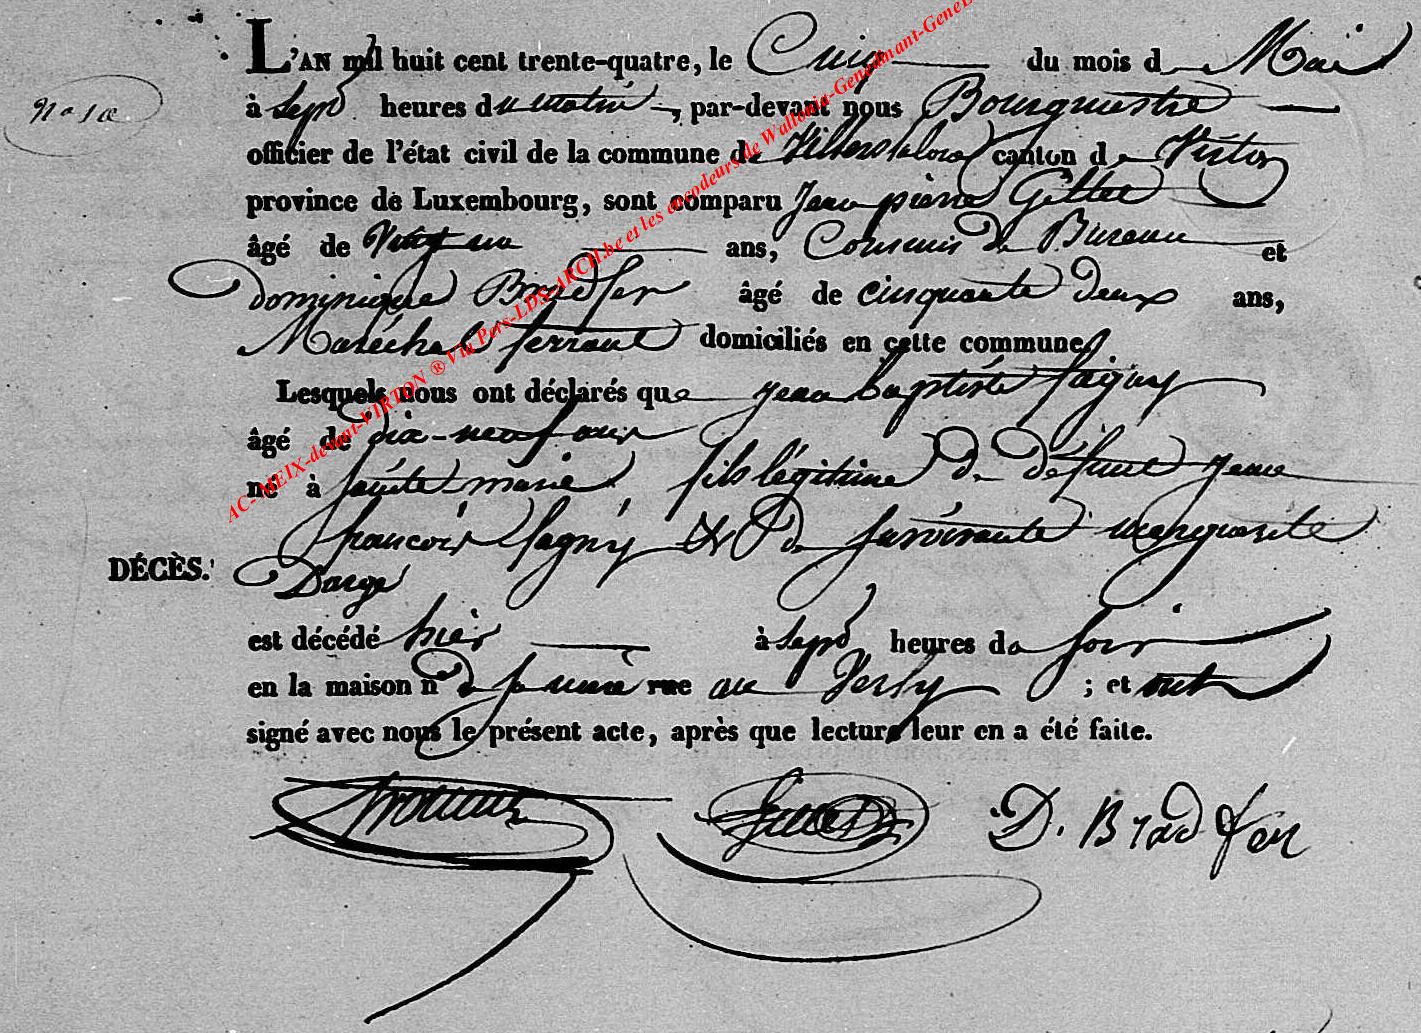 L'AN mil huit cent trente-quatre, le Cinq du mois de Mai
à Sept heures du matin, par-devant nous Bourgmestre
officier de l'état civil de la commune de Villers la loue canton de Virton
province de Luxembourg, sont comparu Jean pierre Gillet
âgé de Vingt un ans, Commis de Bureau et
Dominique Bradfer âgé de cinquante deux ans,
Maréchal ferrant domiciliés en cette commune
Lesquels nous ont déclarés que jean baptiste fagny
âgé de dix-neuf ans
né à sainte marie fils légitime de défunt jean
françois fagny & de survivante marguerite
DÉCÈS.
est décédé hier à Sept heures du soir
en la maison n° de sa mère rue au ; et ont
signé avec nous le présent acte, après que lecture leur en a été faite.
D. Bradfer
AC-MEIX-devant-VIRTON ® Via Pers-LDS-ARCH.be et les encodeurs de Wallonia-Genealmant-Gene